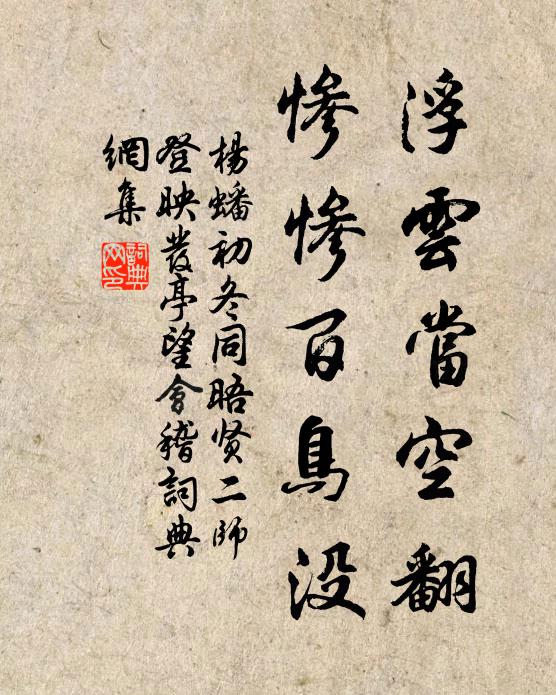 浮雲當空翻
慘慘百鳥沒
楊蟠初冬同晤贤二師
登映發亭望會稽詞典
網集
詞典
网印